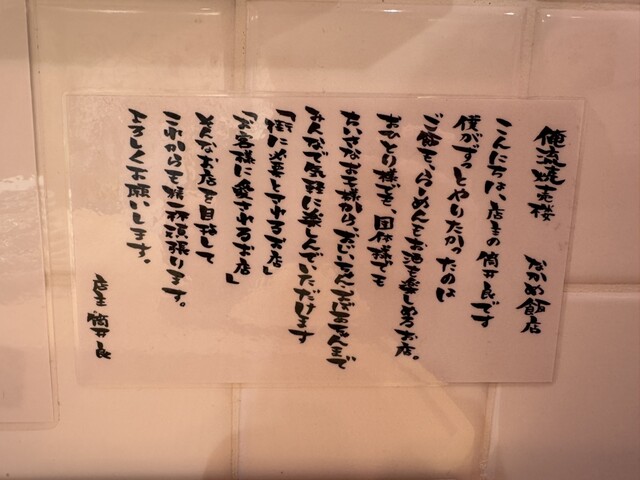 俺流塩老楼 なかめ飯店
こんにちは、店主の筒井良です
僕がずっとやりたかったのは
ご飯を、らーめんをお酒を楽しめるお店。
おひとり様でも、団体様でも
ちいさなお子様から、おじいちゃんおばあちゃんまで
みんなで気軽に楽しんでいただけます
「街に必要とされるお店」
「お客様に愛されるお店」
そんなお店を目指して
これからも精一杯頑張ります。
よろしくお願いします。
店主 筒井良